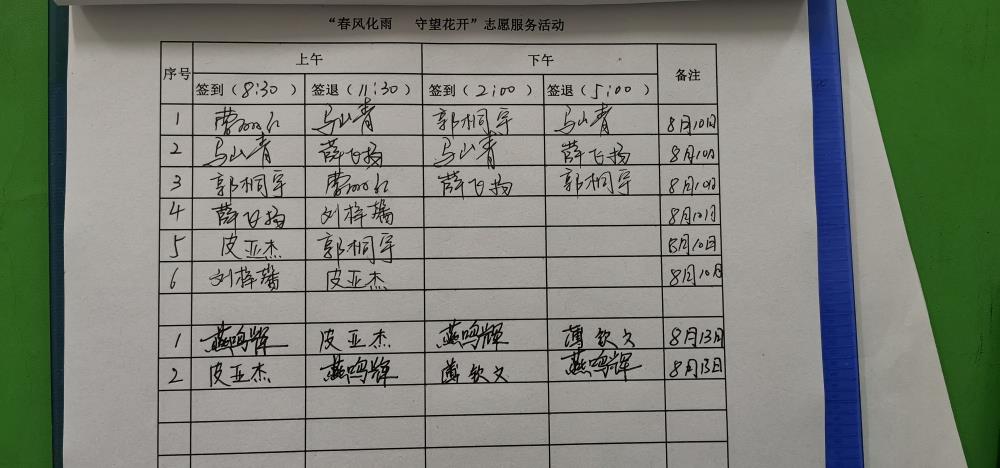 “春风化雨 守望花开”志愿服务活动
序号 上午 下午 备注
签到(8:30) 签退(11:30) 签到(2:00) 签退(5:00)
1 马山青 郭桐宇 马山青 8月10日
2 马山青 薛飞扬 马山青 薛飞扬 8月10日
3 郭桐宇 薛飞扬 郭桐宇 8月10日
4 薛飞扬 刘梓馨 8月10日
5 皮亚杰 郭桐宇 8月10日
6 刘梓馨 皮亚杰 8月10日
1 燕鸣辉 皮亚杰 燕鸣辉 薄钦文 8月13日
2 皮亚杰 燕鸣辉 薄钦文 燕鸣辉 8月13日